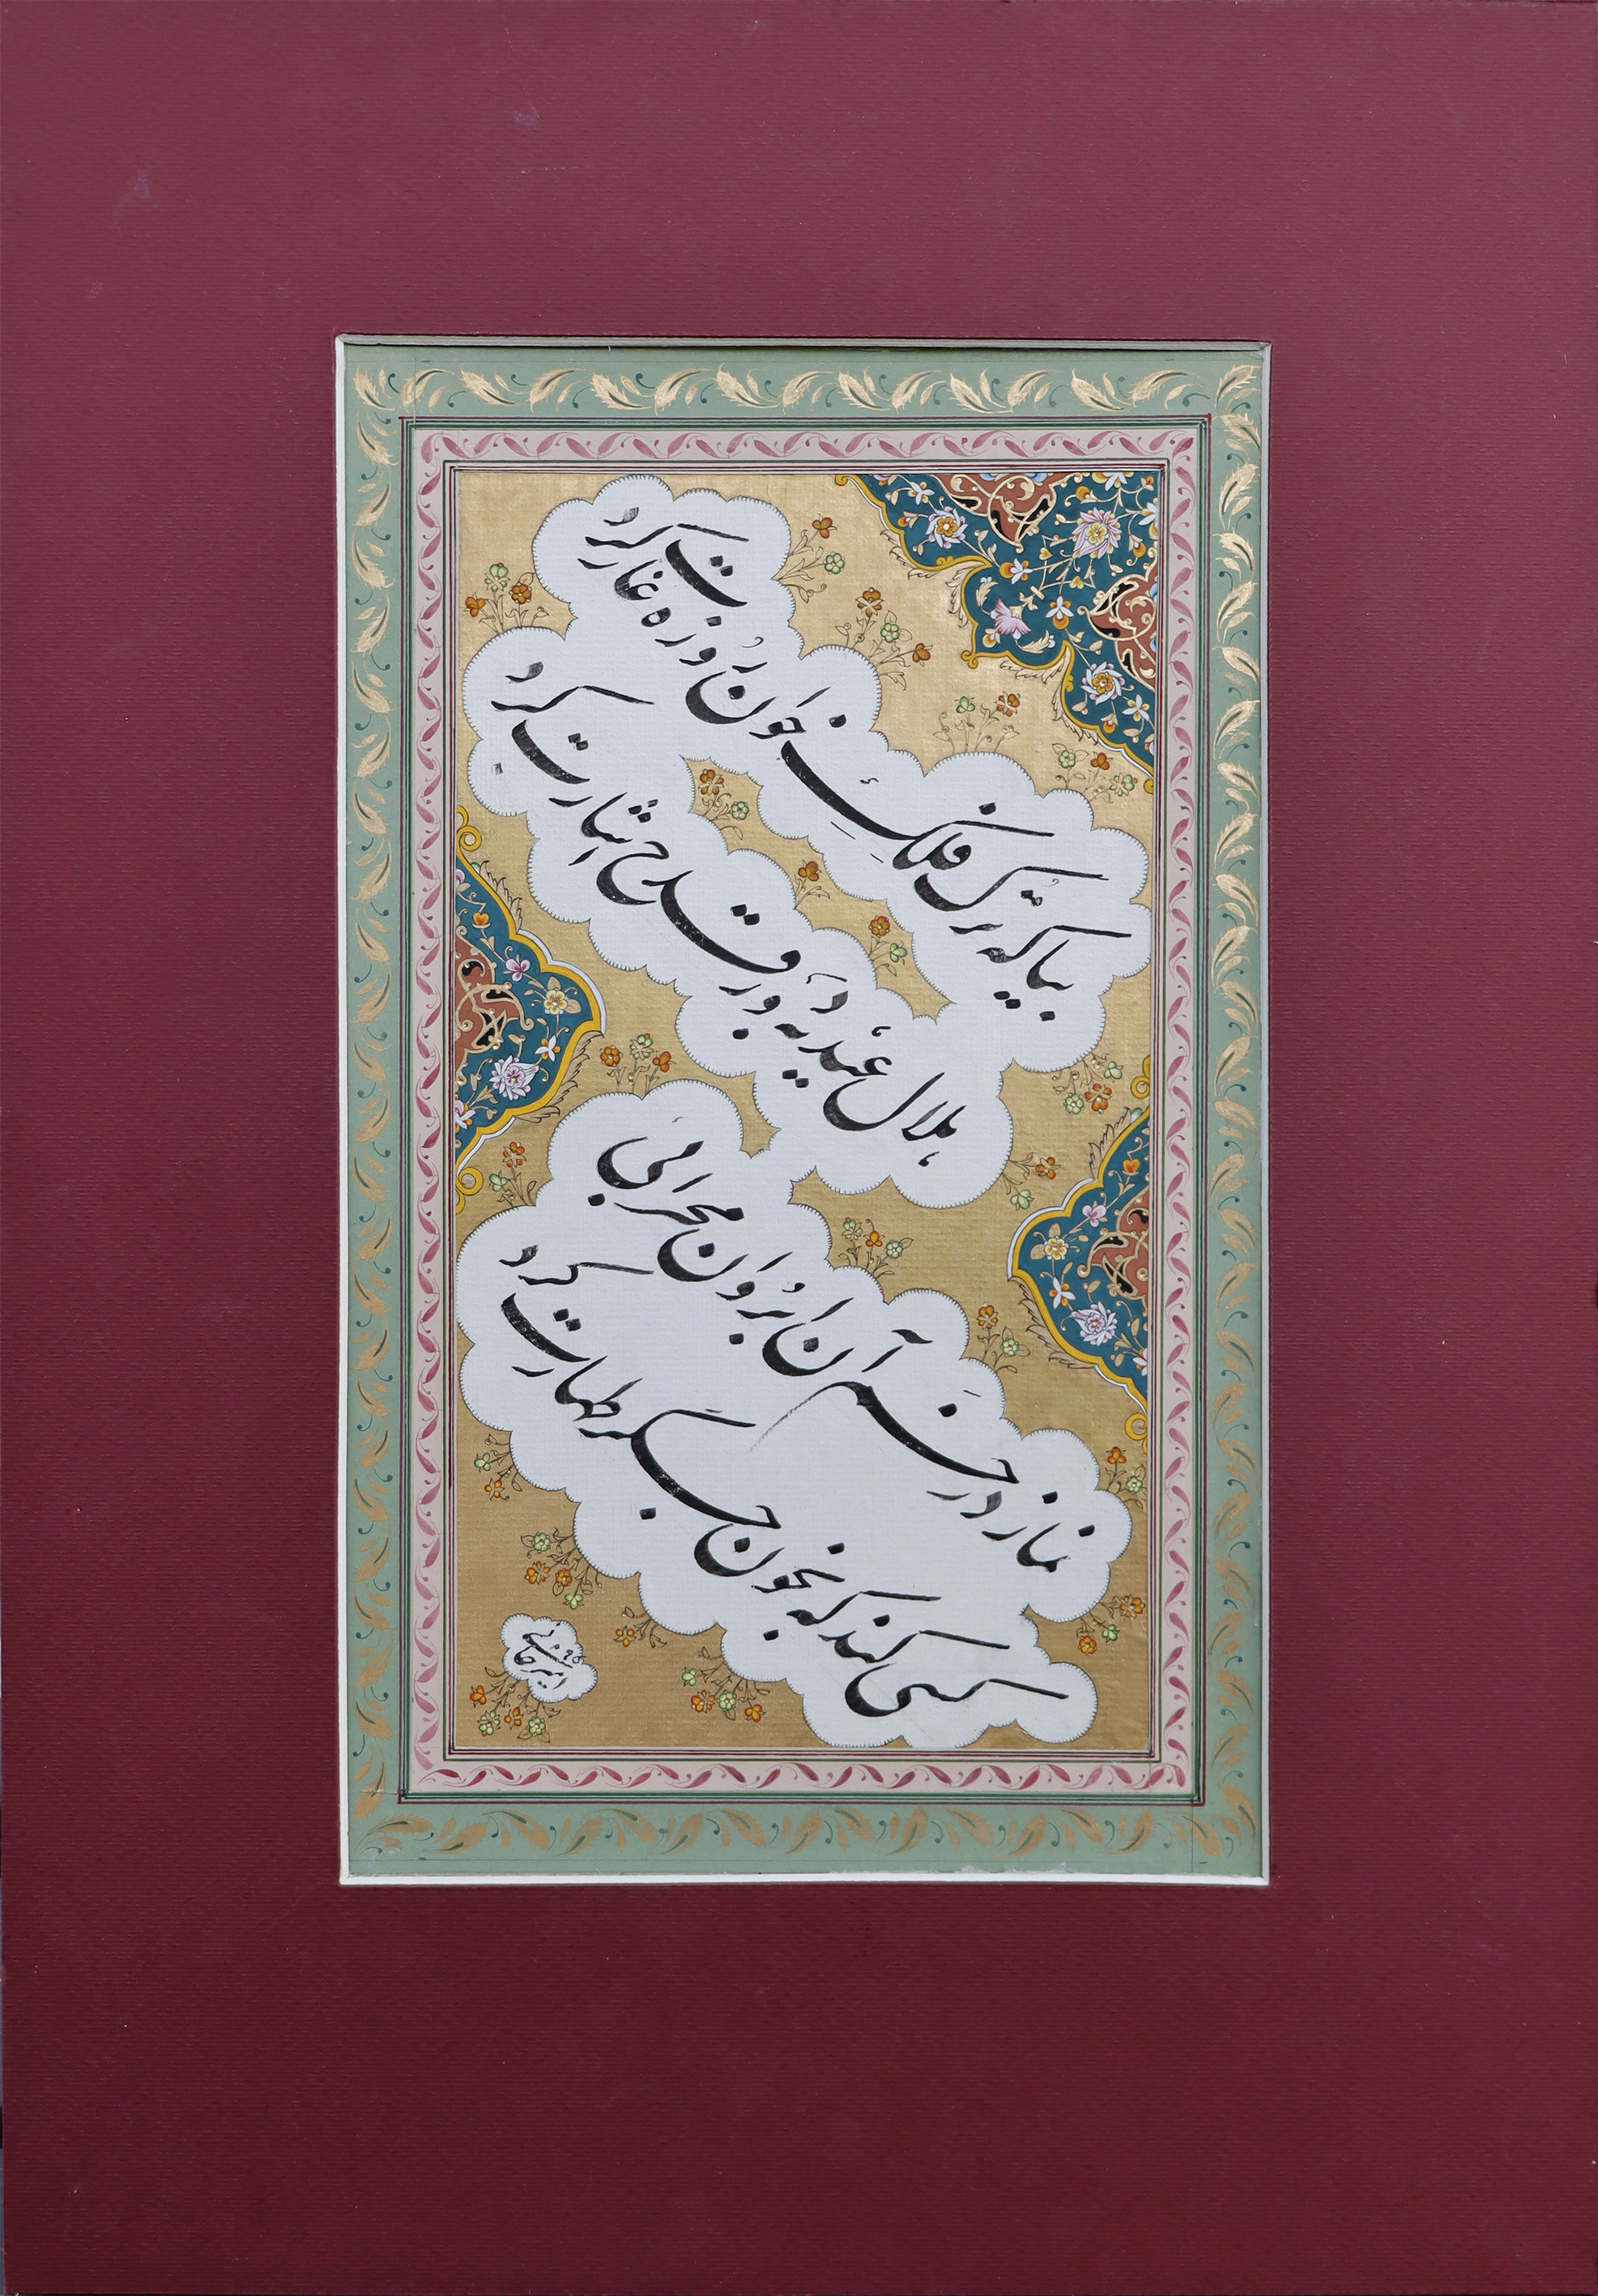 بیا که تُرک فلکِ خوان رُوزه غارت کرد
هلال عید به دور قدح اشارت کرد
نماز در خَم آن ابرُوان محرابی
کسی کند که بخون جگر طهارت کرد
امیرخانی